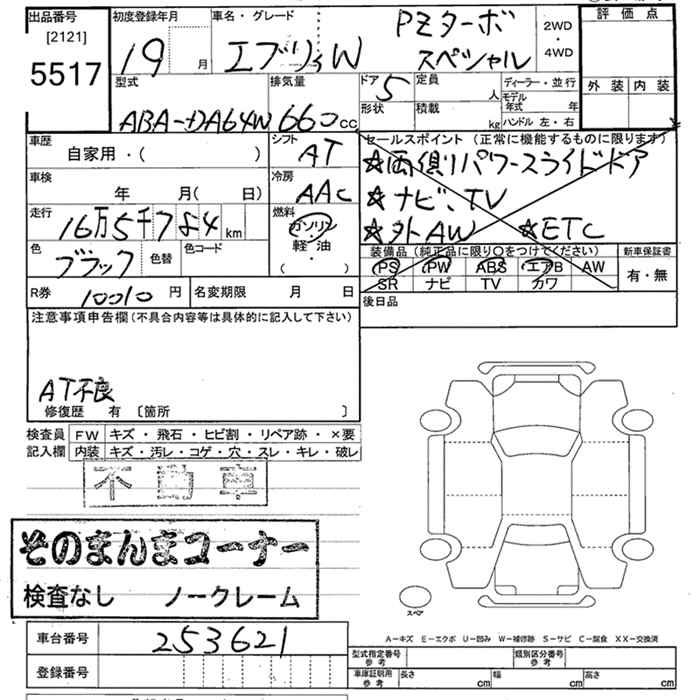 出品番号
[2121]
5517
初度登録年月
19 月
車名・グレード
エブリィW
PZターボ
スペシャル
2WD
・
4WD
評価点
外装 内装
型式
ABA-DA64W
排気量
660 cc
ドア 5
形状
定員 人
積載 kg
ディーラー・並行
モデル年式 年
ハンドル 左・右
車歴
自家用・( )
シフト
AT
車検
年 月( 日)
冷房
AAC
走行
16万5千784 km
燃料
ガソリン
・
軽油
・
( )
色
ブラック
色替
色コード
R券
10010 円
名変期限 月 日
セールスポイント (正常に機能するものに限ります)
☆両側パワースライドドア
☆ナビ、TV
☆外AW ☆ETC
装備品(純正品に限り○をつけてください)
PS PW ABS エアB AW
SR ナビ TV カワ
新車保証書
有・無
後日品
注意事項申告欄(不具合内容等は具体的に記入して下さい)
AT不良
修復歴 有 〔箇所 〕
検査員
記入欄
FW キズ・飛石・ヒビ割・リペア跡・×要
内装 キズ・汚レ・コゲ・穴・スレ・キレ・破レ
不動車
そのまんまコーナー
検査なし ノークレーム
スペア
A-キズ E-エクボ U-凹み W-補修跡 S-サビ C-腐食 XX-交換済
車台番号
253621
登録番号
型式指定番号
参考
類別区分番号
参考
車庫証明用
参考
長さ cm
幅 cm
高さ cm